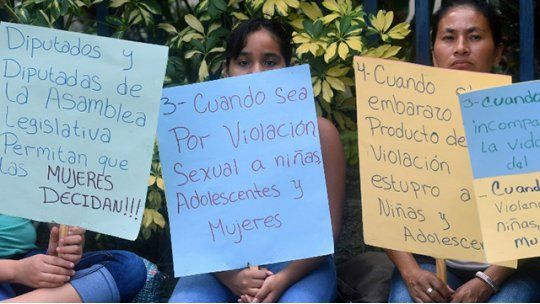 Diputados y
Diputadas de
La Asamblea
Legislativa
Permitan que
las MUJERES
DECIDAN!!!
3- Cuando sea
Por Violación
Sexual a niñas
Adolescentes y
Mujeres
4- Cuando
embarazo
Producto de
Violación
estupro a
Niñas y
Adolescen
incompa
la vida
del
- Cuando
Violen
niñas,
Mu